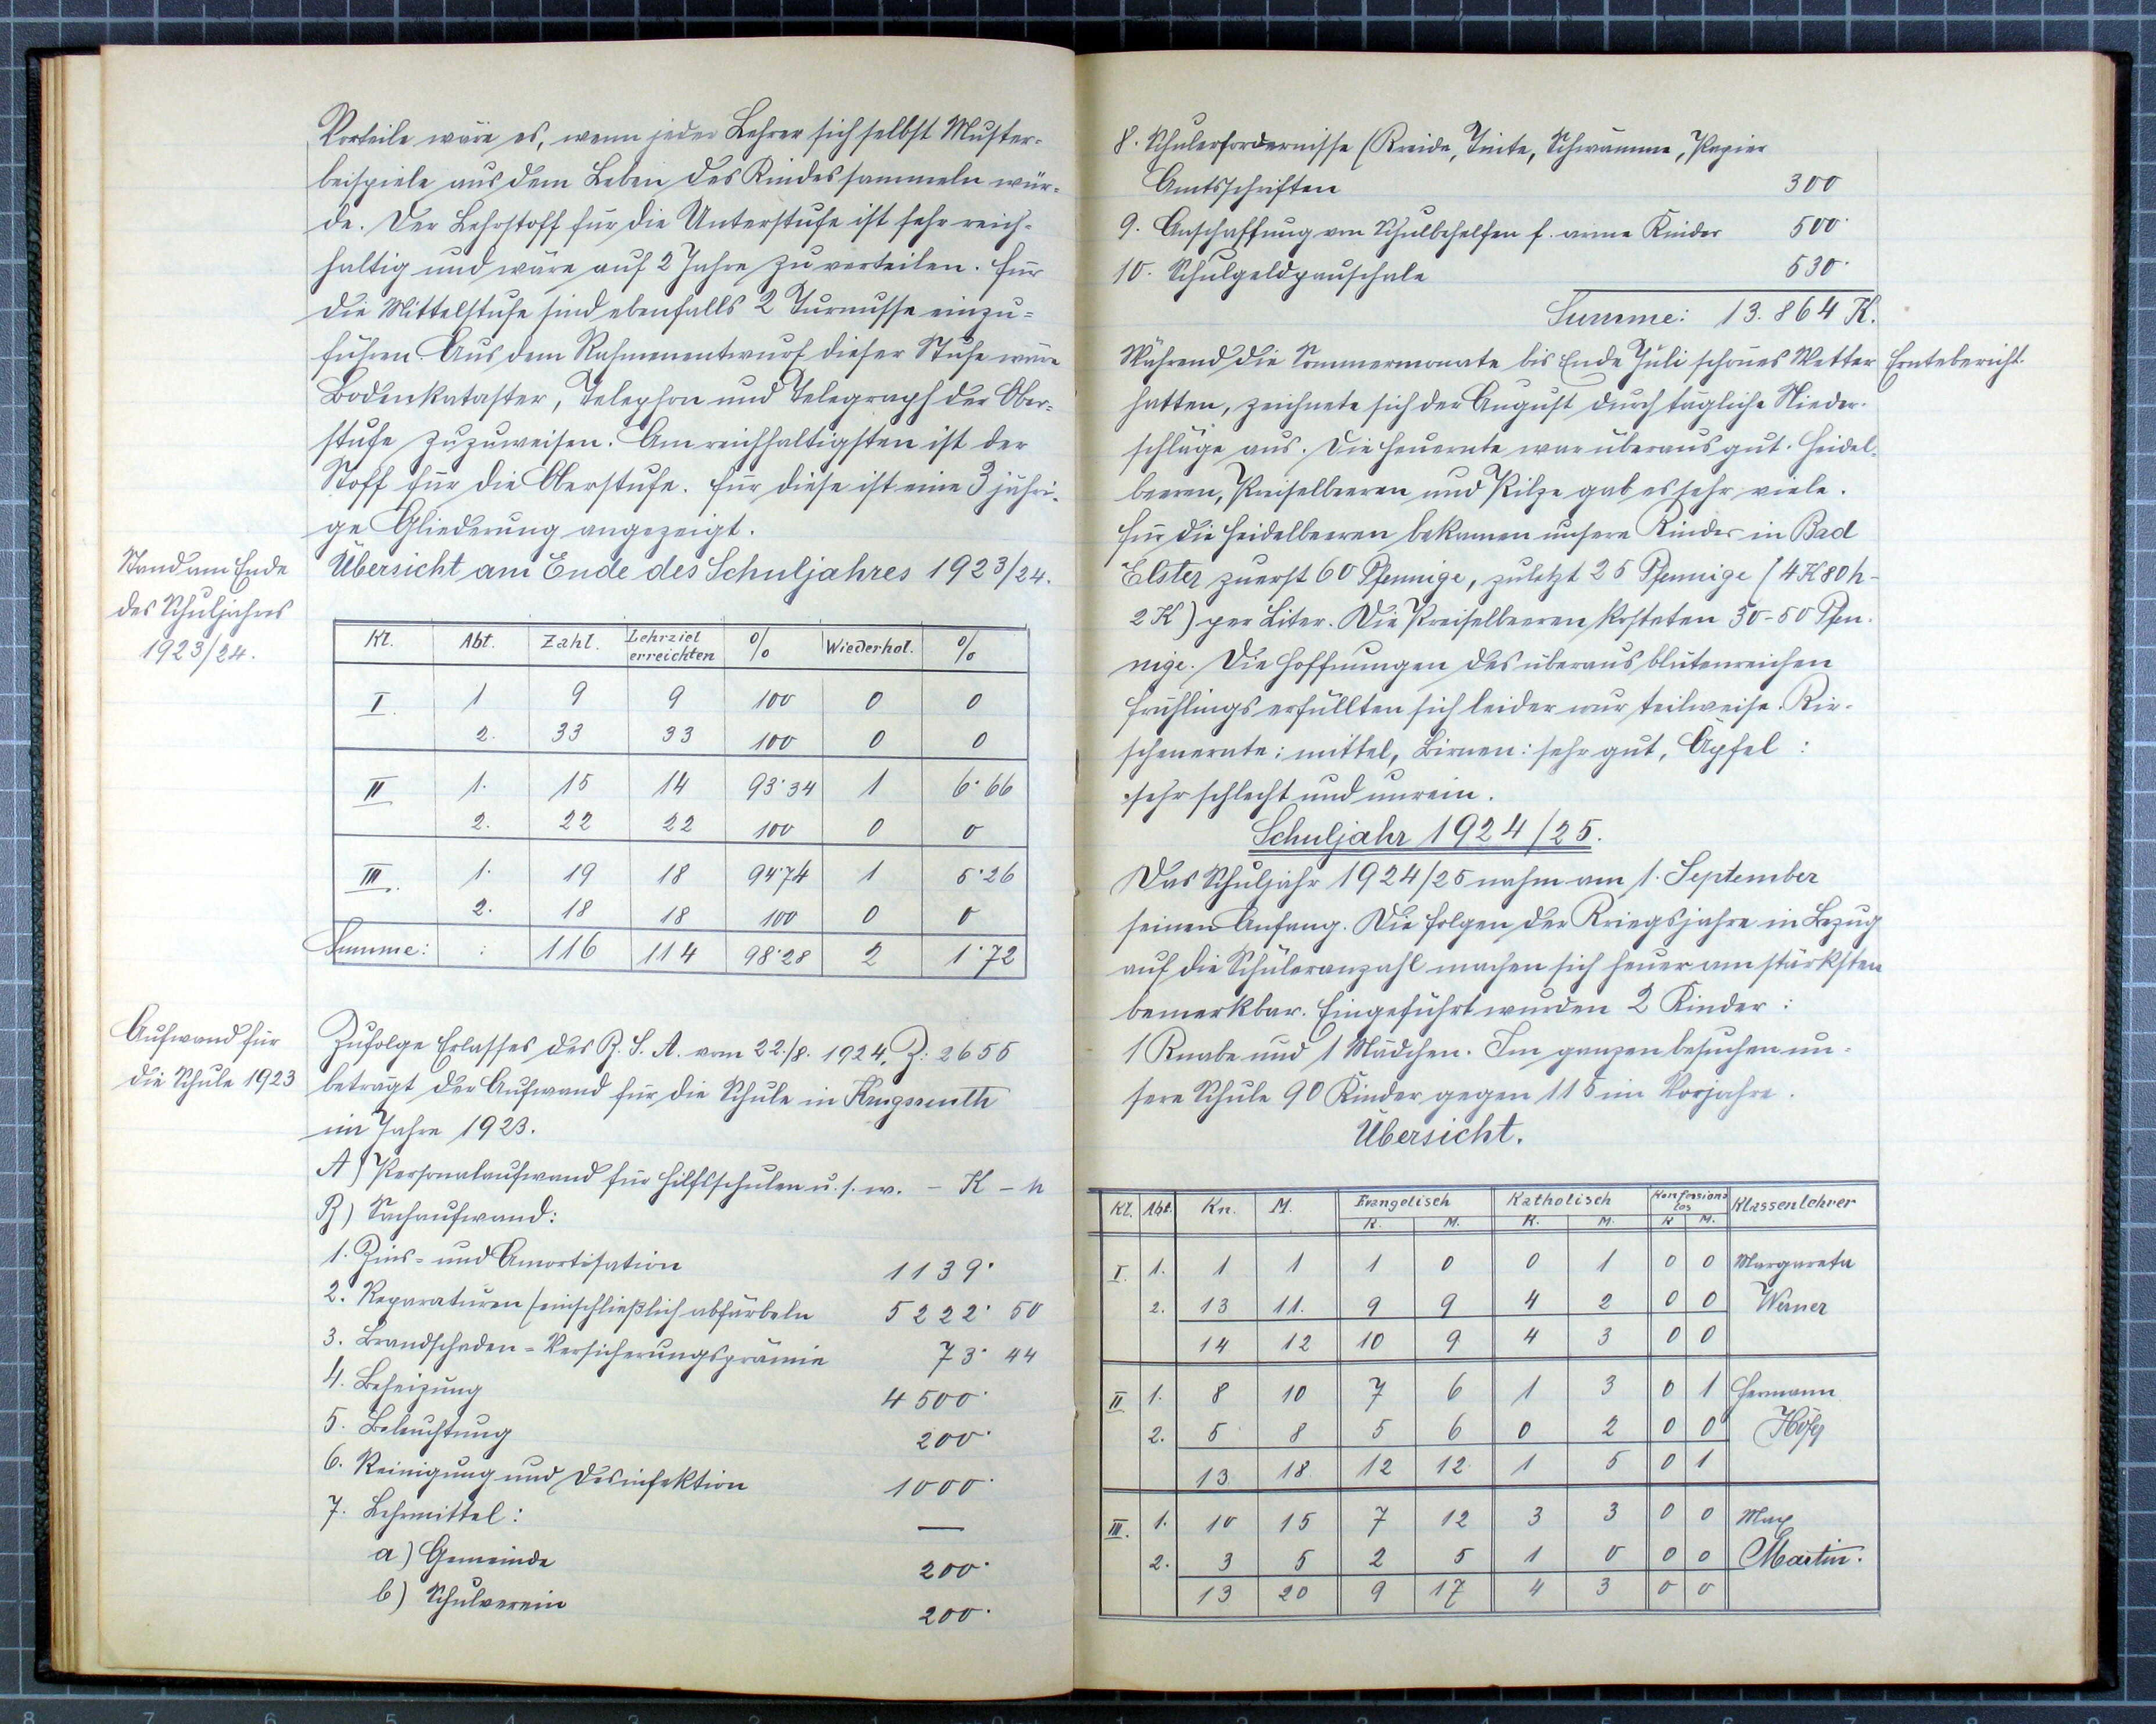 Vorteile wäre es, wenn jeder Lehrer sich selbst Muster-
beispiele aus dem Leben des Kindes sammeln wür-
de. Der Lehrstoff für die Unterstufe ist sehr reich-
haltig und wäre auf 2 Jahre zu verteilen. Für
die Mittelstufe sind ebenfalls 2 Turnusse einzu=
führen Aus dem Rahmenentwurf dieser Stufe wäre
Bodenkataster, Telephon und Telegraph der Ober-
stufe zuzuweisen. Am reichhaltigsten ist der
Stoff für die Oberstufe. Für diese ist eine 3 jähri-
ge Gliederung angezeigt.
Stand am Ende
des Schuljahres
1923/24.
Übersicht am Ende des Schuljahres 1923/24.
Kl. Abt. Zahl. Lehrziel erreichten % Wiederhol. %
I. 1 9 9 100 0 0
2. 33 33 100 0 0
II 1. 15 14 93·34 1 6·66
2. 22 22 100 0 0
III. 1. 19 18 94·74 1 5·26
2. 18 18 100 0 0
Summe: : 116 114 98·28 2 1·72
Aufwand für
die Schule 1923
Zufolge Erlasses des B. S. A. vom 22./8. 1924, Z: 2655
beträgt der Aufwand für die Schule in Krugsreuth
im Jahre 1923.
A) Personalaufwand für Hilfsschulen u. s. w. – K – h
B) Sachaufwand:
1. Zins- und Amortisation 1139·
2. Reparaturen (einschließlich abfärbeln 5222· 50
3. Brandschaden-Versicherungsprämie 73· 44
4. Beheizung 4500·
5. Beleuchtung 200·
6. Reinigung und Desinfektion 1000·
7. Lehrmittel: —
a) Gemeinde 200·
b) Schulverein 200·
8. Schulerfordernisse (Kreide, Tinte, Schwämme, Papier
Amtsschriften 300
9. Anschaffung von Schulbehelfen f. arme Kinder 500·
10. Schulgeldpauschale 530·
Summe: 13.864 K.
Erntebericht.
Während die Sommermonate bis Ende Juli schönes Wetter
hatten, zeichnete sich der August durch tägliche Nieder-
schläge aus. Die Heuernte war überaus gut. Heidel-
beeren, Preiselbeeren und Pilze gab es sehr viele.
Für die Heidelbeeren bekamen unsere Kinder in Bad
Elster zuerst 60 Pfennige, zuletzt 25 Pfennige (4K80h-
2K) per Liter. Die Preiselbeeren kosteten 30-50 Pfen-
nige. Die Hoffnungen des überaus blütenreichen
Frühlings erfüllten sich leider nur teilweise. Kir-
schenernte: mittel, Birnen: sehr gut, Äpfel:
sehr schlecht und unrein.
Schuljahr 1924/25.
Das Schuljahr 1924/25 nahm am 1. September
seinen Anfang. Die Folgen der Kriegsjahre in Bezug
auf die Schüleranzahl machen sich heuer am stärksten
bemerkbar. Eingeführt wurden 2 Kinder:
1 Knabe und 1 Mädchen. Im ganzen besuchen un-
sere Schule 90 Kinder gegen 115 im Vorjahre.
Übersicht.
Kl. Abt. Kn. M. Evangelisch Katholisch Konfessions los Klassenlehrer
K. M. K. M. K M.
I. 1. 1 1 1 0 0 1 0 0 Margareta
2. 13 11. 9 9 4 2 0 0 Werner
14 12 10 9 4 3 0 0
II 1. 8 10 7 6 1 3 0 1 Hermann
2. 5 8 5 6 0 2 0 0
13 18 12 12 1 5 0 1
III. 1. 10 15 7 12 3 3 0 0 Max
2. 3 5 2 5 1 0 0 0 Martin.
13 20 9 17 4 3 0 0